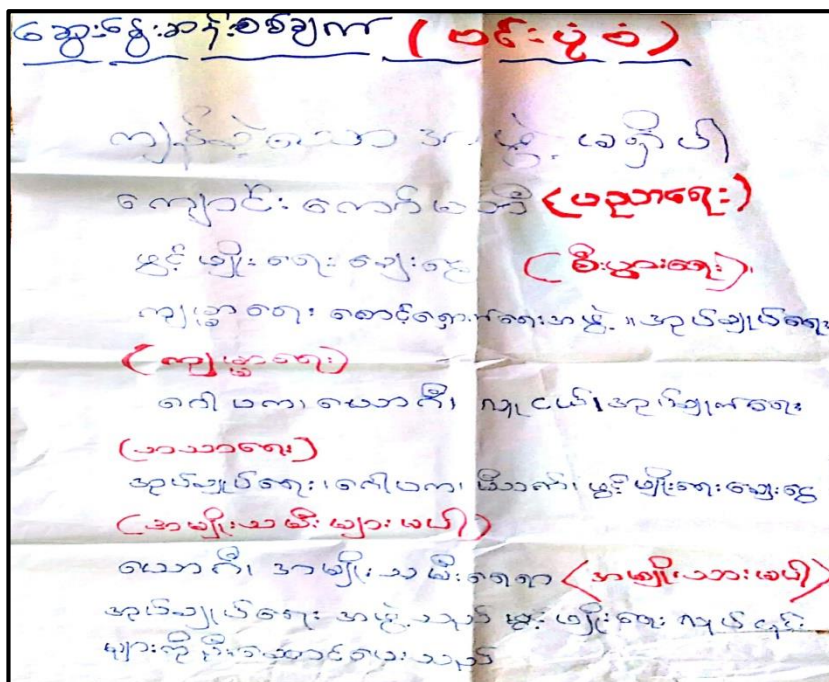 ဆွေးနွေးဆန်းစစ်ချက် (ဗင်းပုံစံ)
ကျန်တဲ့ ယောအဖွဲ့ မရှိပါ
ကျောင်းကော်မတီ (ပညာရေး)
ဖွင့်ဖြိုးရေး ချေးငွေ (စီးပွားရေး)၊
ကျန်းမာရေး စောင့်ရှောက်ရေးအဖွဲ့ ။ အုပ်ချုပ်ရေး
(ကျန်းမာရေး)
ဂေါပက၊ ယောဂီ၊ လူငယ်၊ အုပ်ချုပ်ရေး
(ဘာသာရေး)
အုပ်ချုပ်ရေး၊ ဂေါပက၊ မီသတ်၊ ဖွင့်ဖြိုးရေးချေးငွေ
(အမျိုးသမီးများမပါ)
ယောဂီ၊ အမျိုးသမီးရေရာ (အမျိုးသားမပါ)
အုပ်ချုပ်ရေး အဖွဲ့သည် ဖွင့်ဖြိုးရေး လုပ်ငန်း
များကို ဦးဆောင်ပေးသည်